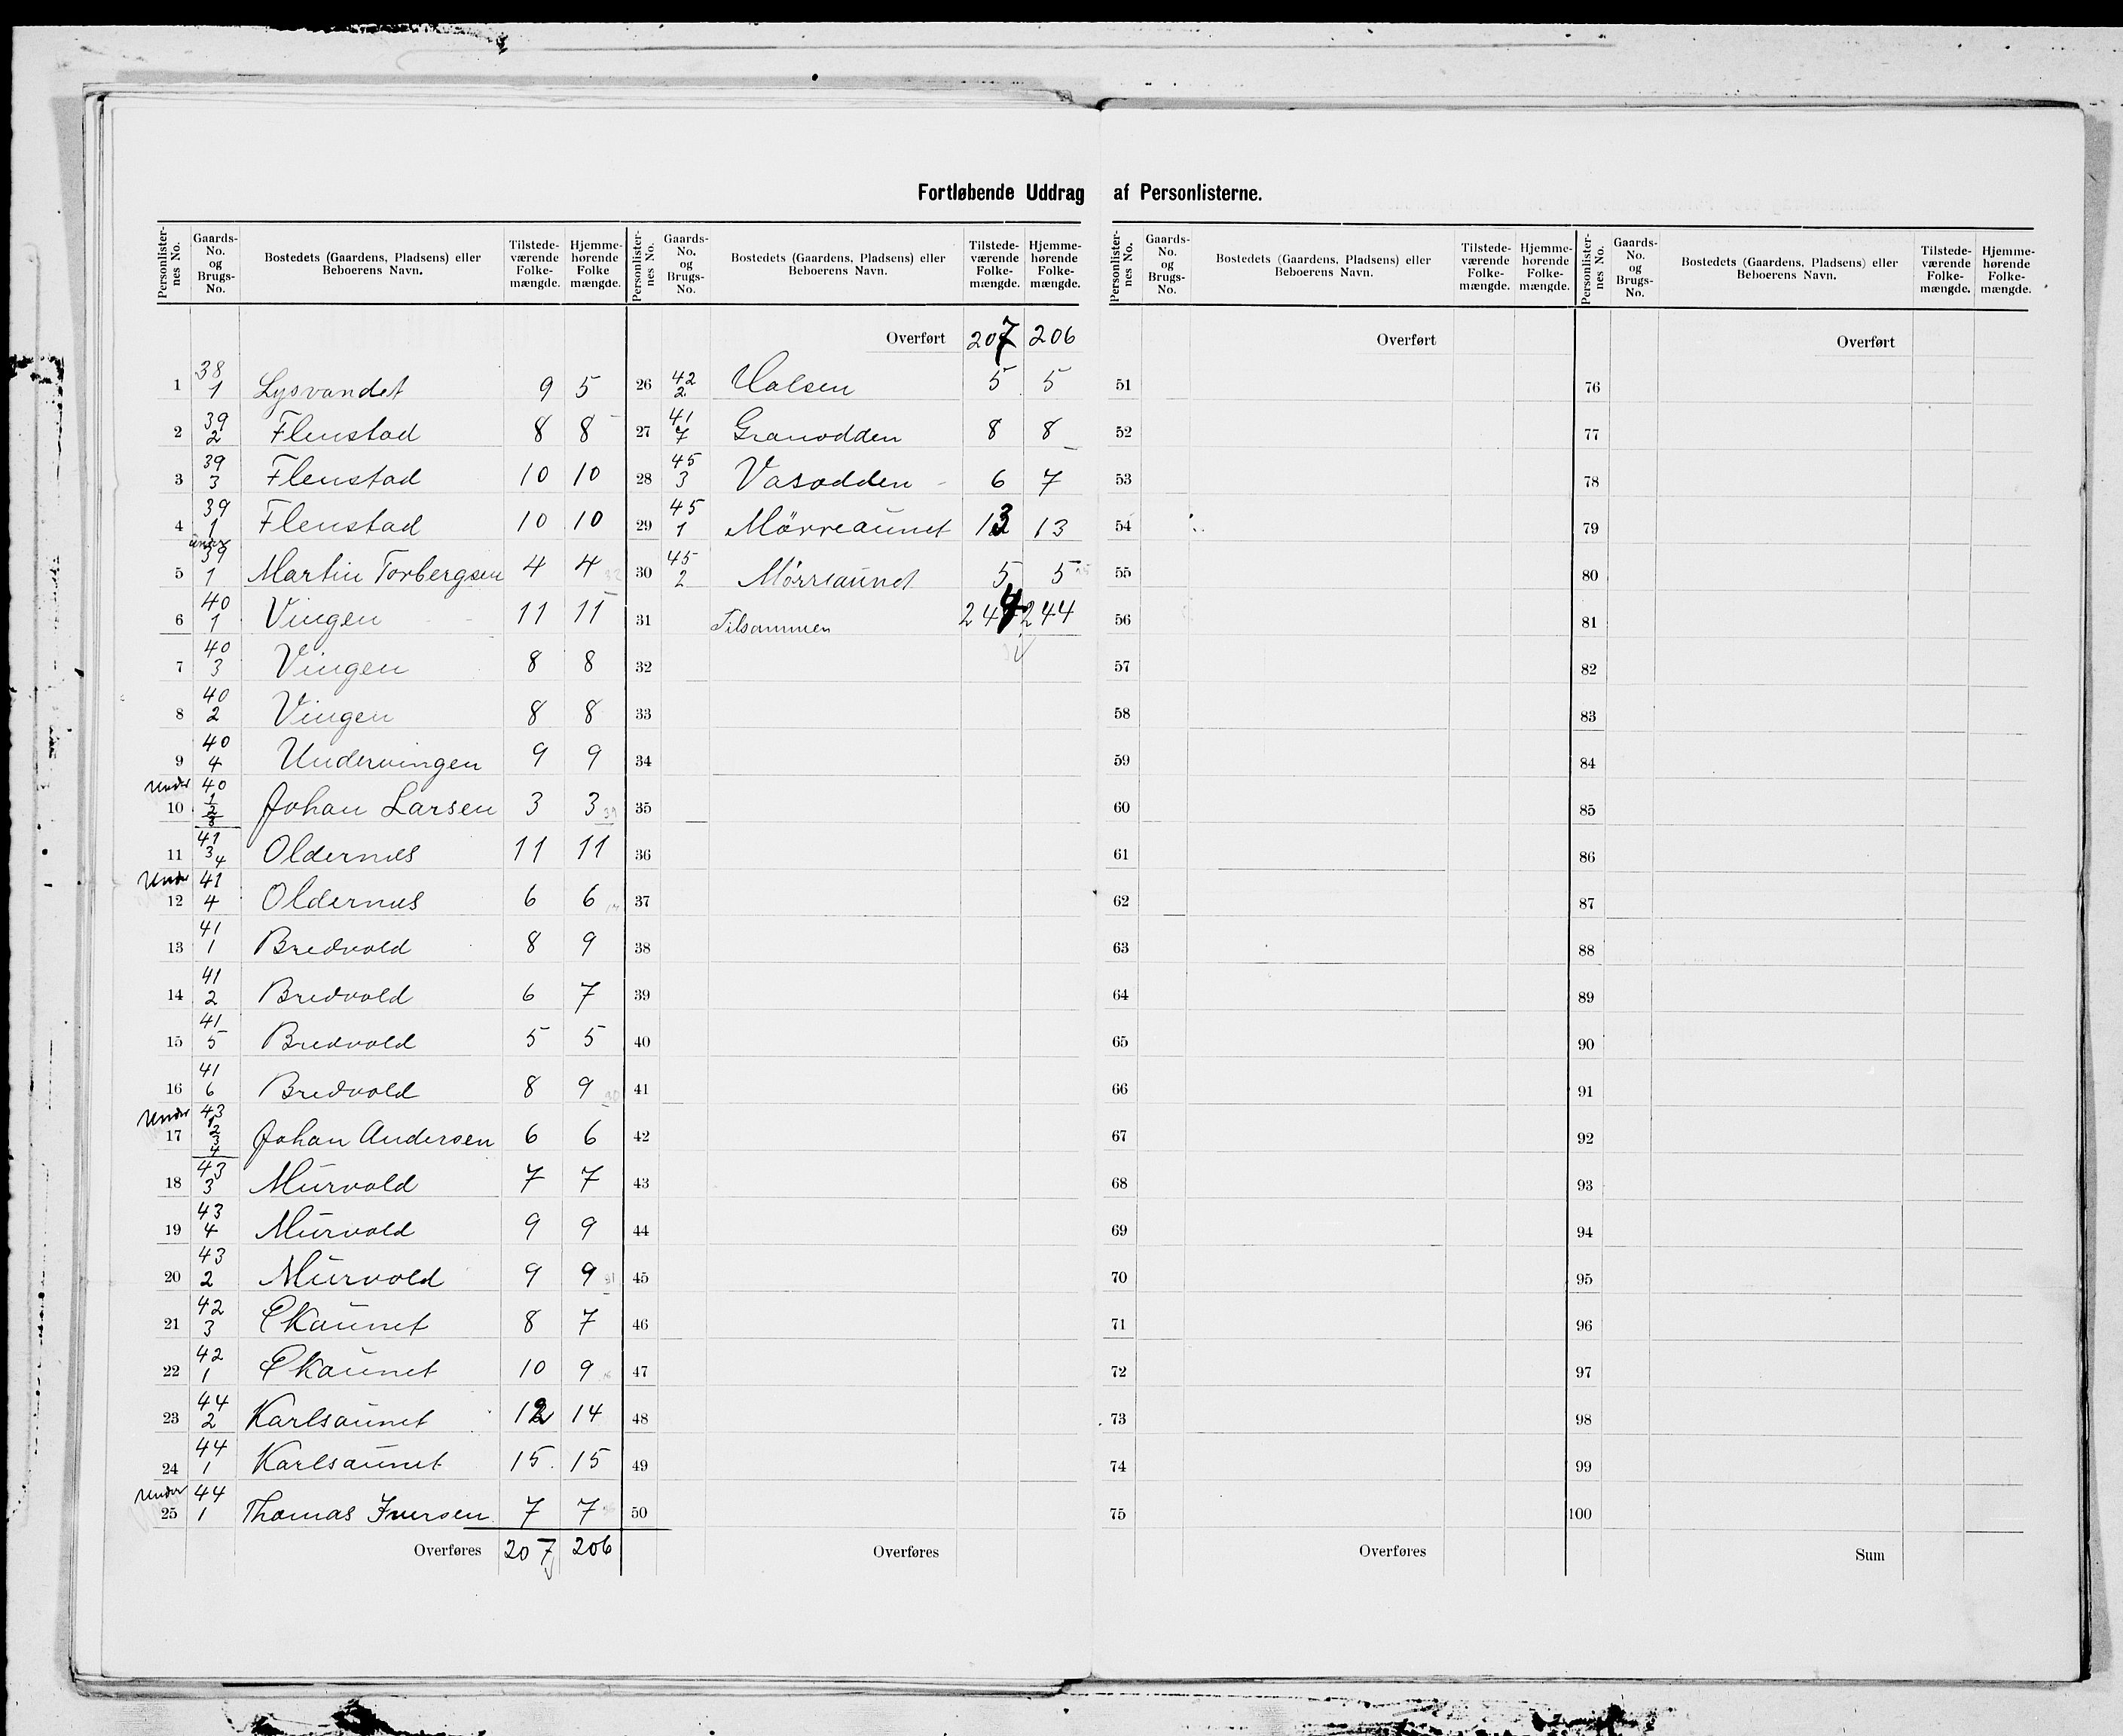 Fortløbende Uddrag af Personlisterne.
Personlisternes No. | Gaards-No. og Brugs-No. | Bostedets (Gaardens, Pladsens) eller Beboerens Navn. | Tilstedeværende Folkemængde. | Hjemmehørende Folke mængde.
1 38 1 Lysvandet 9 5
2 39 2 Flenstad 8 8
3 39 3 Flenstad 10 10
4 39 1 Flenstad 10 10
5 under 39 1 Martin Torbergsen 4 4
6 40 1 Vingen 11 11
7 40 3 Vingen 8 8
8 40 2 Vingen 8 8
9 40 4 Undervingen 9 9
10 Under 40 1 2 3 Johan Larsen 3 3
11 41 3 4 Oldernæs 11 11
12 Under 41 4 Oldernæs 6 6
13 41 1 Bredvold 8 9
14 41 2 Bredvold 6 7
15 41 5 Bredvold 5 5
16 41 6 Bredvold 8 9
17 Under 43 2 3 4 Johan Andersen 6 6
18 43 3 Murvold 7 7
19 43 4 Murvold 9 9
20 43 2 Murvold 9 9
21 42 3 Ekaunet 8 7
22 42 1 Ekaunet 10 9
23 44 2 Karlsaunet 12 14
24 44 1 Karlsaunet 15 15
25 Under 44 1 Thomas Iversen 7 7
Overføres 207 206
Personlisternes No. | Gaards-No. og Brugs-No. | Bostedets (Gaardens, Pladsens) eller Beboerens Navn. | Tilstedeværende Folkemængde. | Hjemmehørende Folkemængde.
Overført 207 206
26 42 2 Halsen 5 5
27 41 7 Granodden 8 8
28 45 3 Vasodden 6 7
29 45 1 Mörreaunet 13 13
30 45 2 Mörreaunet 5 5
31 Tilsammen 244 244
32
33
34
35
36
37
38
39
40
41
42
43
44
45
46
47
48
49
50
Overføres
Personlisternes No. | Gaards-No. og Brugs-No. | Bostedets (Gaardens, Pladsens) eller Beboerens Navn. | Tilstedeværende Folkemængde. | Hjemmehørende Folkemængde.
Overført
51
52
53
54
55
56
57
58
59
60
61
62
63
64
65
66
67
68
69
70
71
72
73
74
75
Overføres
Personlisternes No. | Gaards-No. og Brugs-No. | Bostedets (Gaardens, Pladsens) eller Beboerens Navn. | Tilstedeværende Folkemængde. | Hjemmehørende Folkemængde.
Overført
76
77
78
79
80
81
82
83
84
85
86
87
88
89
90
91
92
93
94
95
96
97
98
99
100
Sum